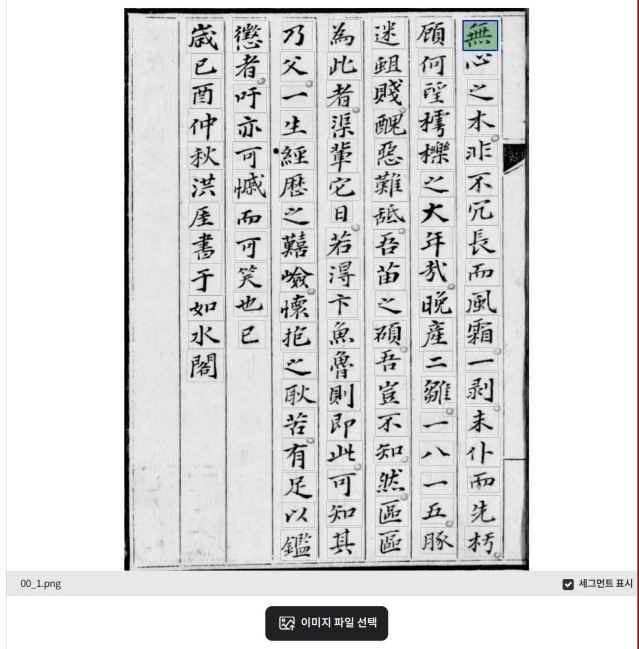 無心之木非不冗長而風霜一剥未仆而先朽
顧何望樗櫟之大年㢤晚産二雛一八一五豚
迷賤醜惡難舐吾苗之碩吾豈不知然區區
為此者渠軰它日若淂卞魚魯則即此可知其
乃父一生經歷之囏嶮懷抱之耿苦有足以鑑
懲者吁亦可慽而可笑也已
歲己酉仲秋洪厓書于如水閣
00_1.png
세그먼트 표시
이미지 파일 선택